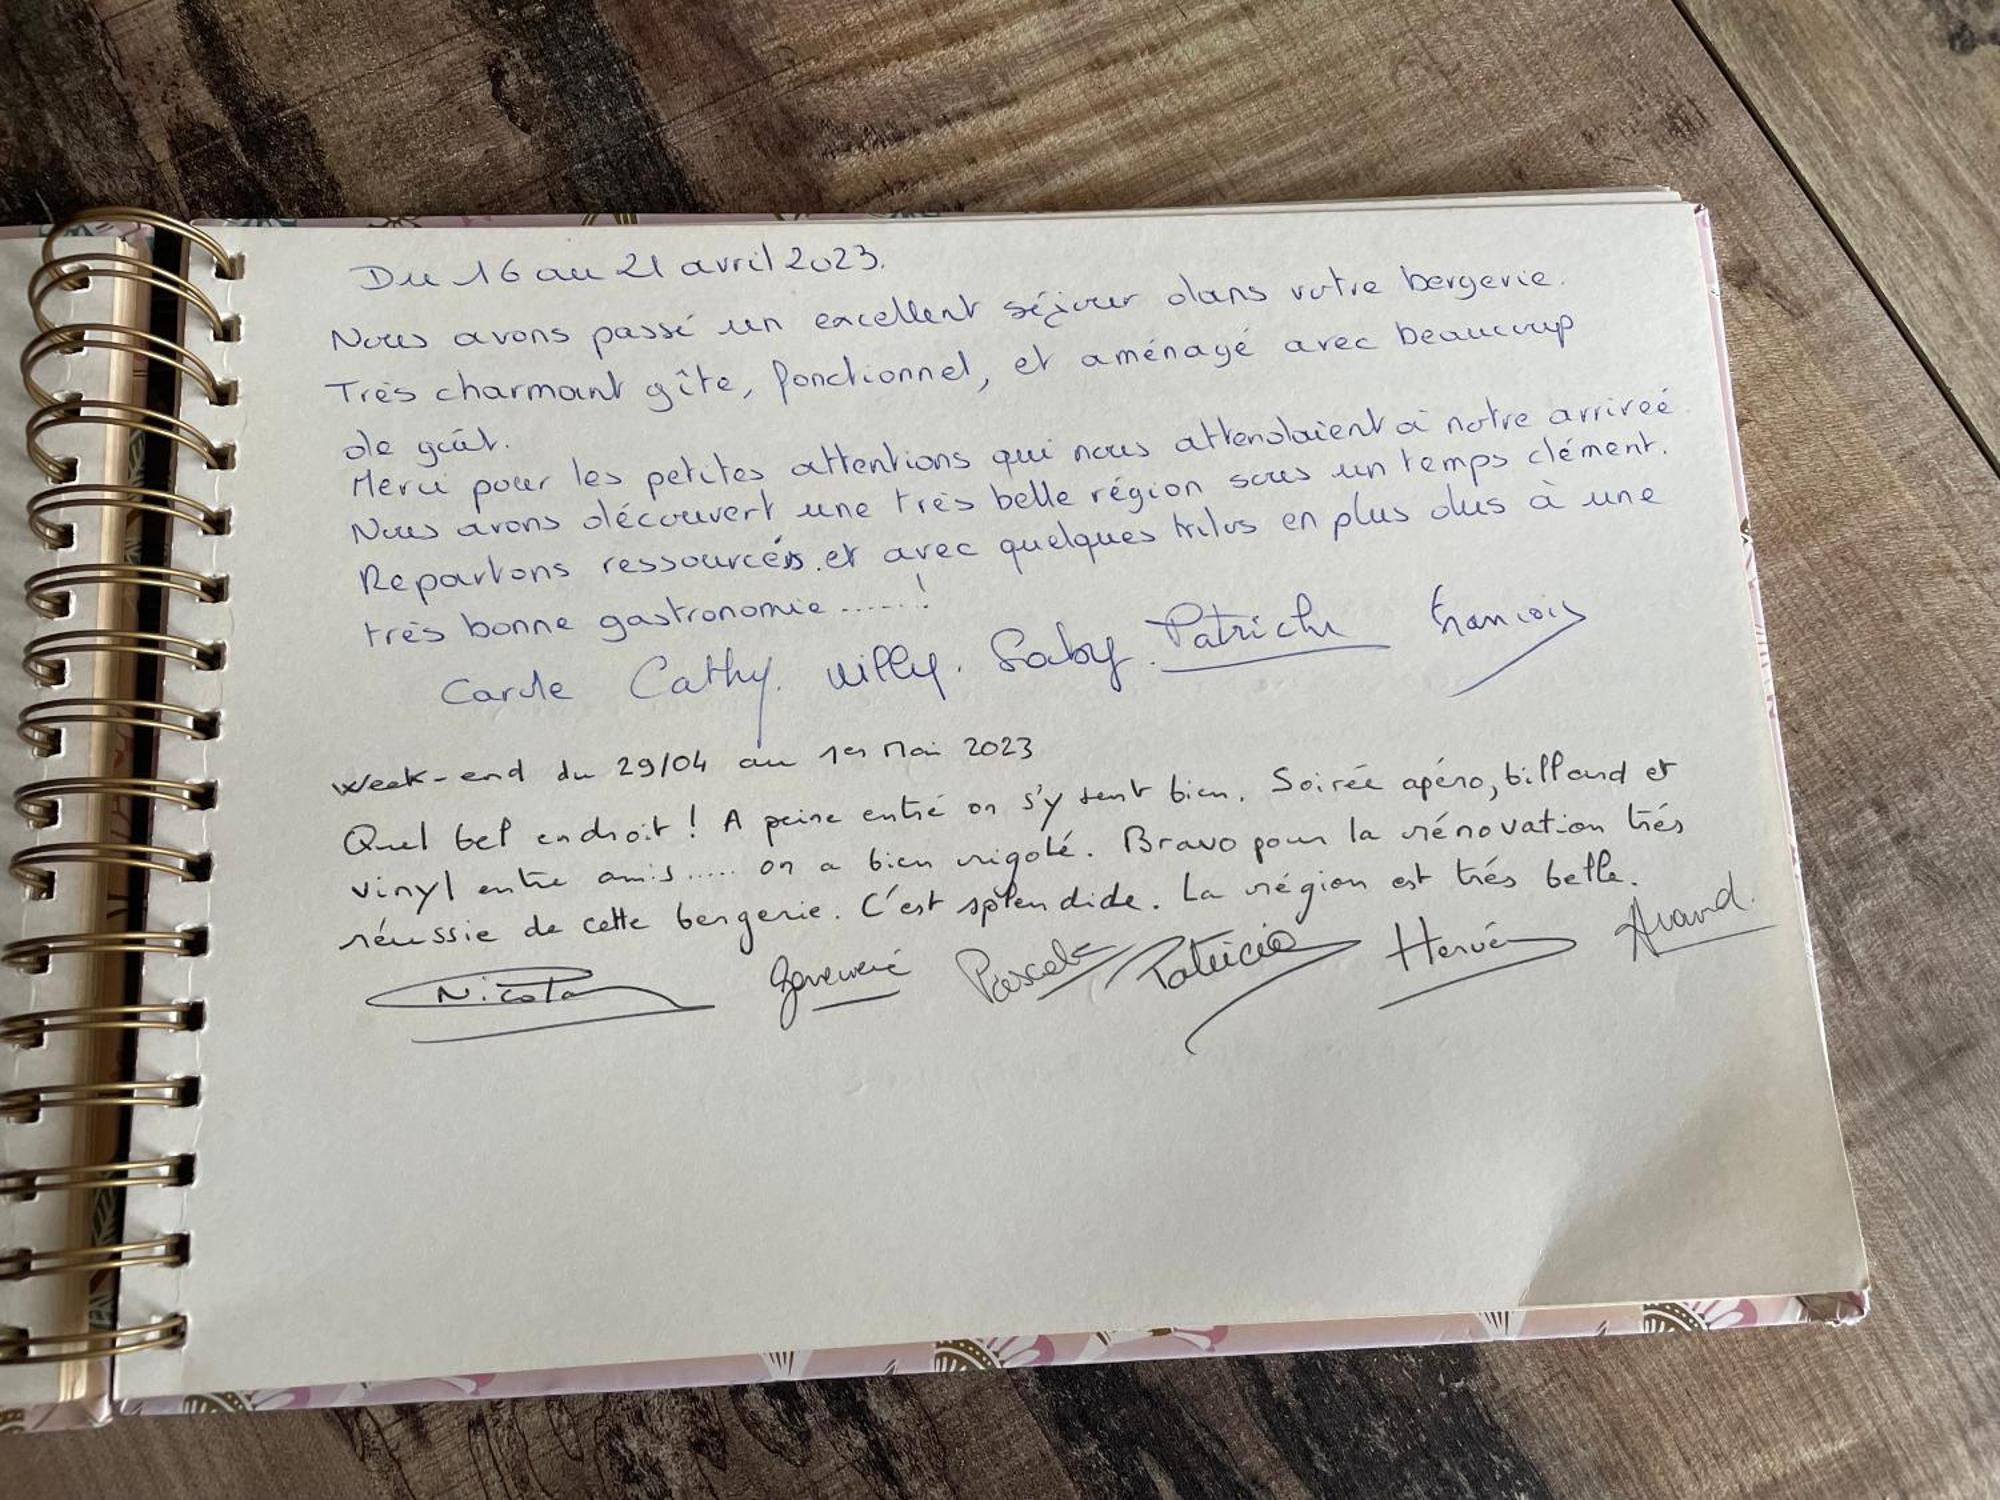 Du 16 au 21 avril 2023.
Nous avons passé un excellent séjour dans votre bergerie.
Très charmant gîte, fonctionnel, et aménagé avec beaucoup
de goût.
Merci pour les petites attentions qui nous attendaient à notre arrivée
Nous avons découvert une très belle région sous un temps clément.
Repartons ressourcés et avec quelques kilos en plus dus à une
très bonne gastronomie ......!
Carole Cathy. Willy. Gaby. Patrick François
Week-end du 29/04 au 1er Mai 2023
Quel bel endroit ! A peine entré on s'y sent bien. Soirée apéro, billard et
vinyl entre amis..... on a bien rigolé. Bravo pour la rénovation trés
réussie de cette bergerie. C'est splendide. La région est trés belle.
Nicolas Pascale Patricia Hervé